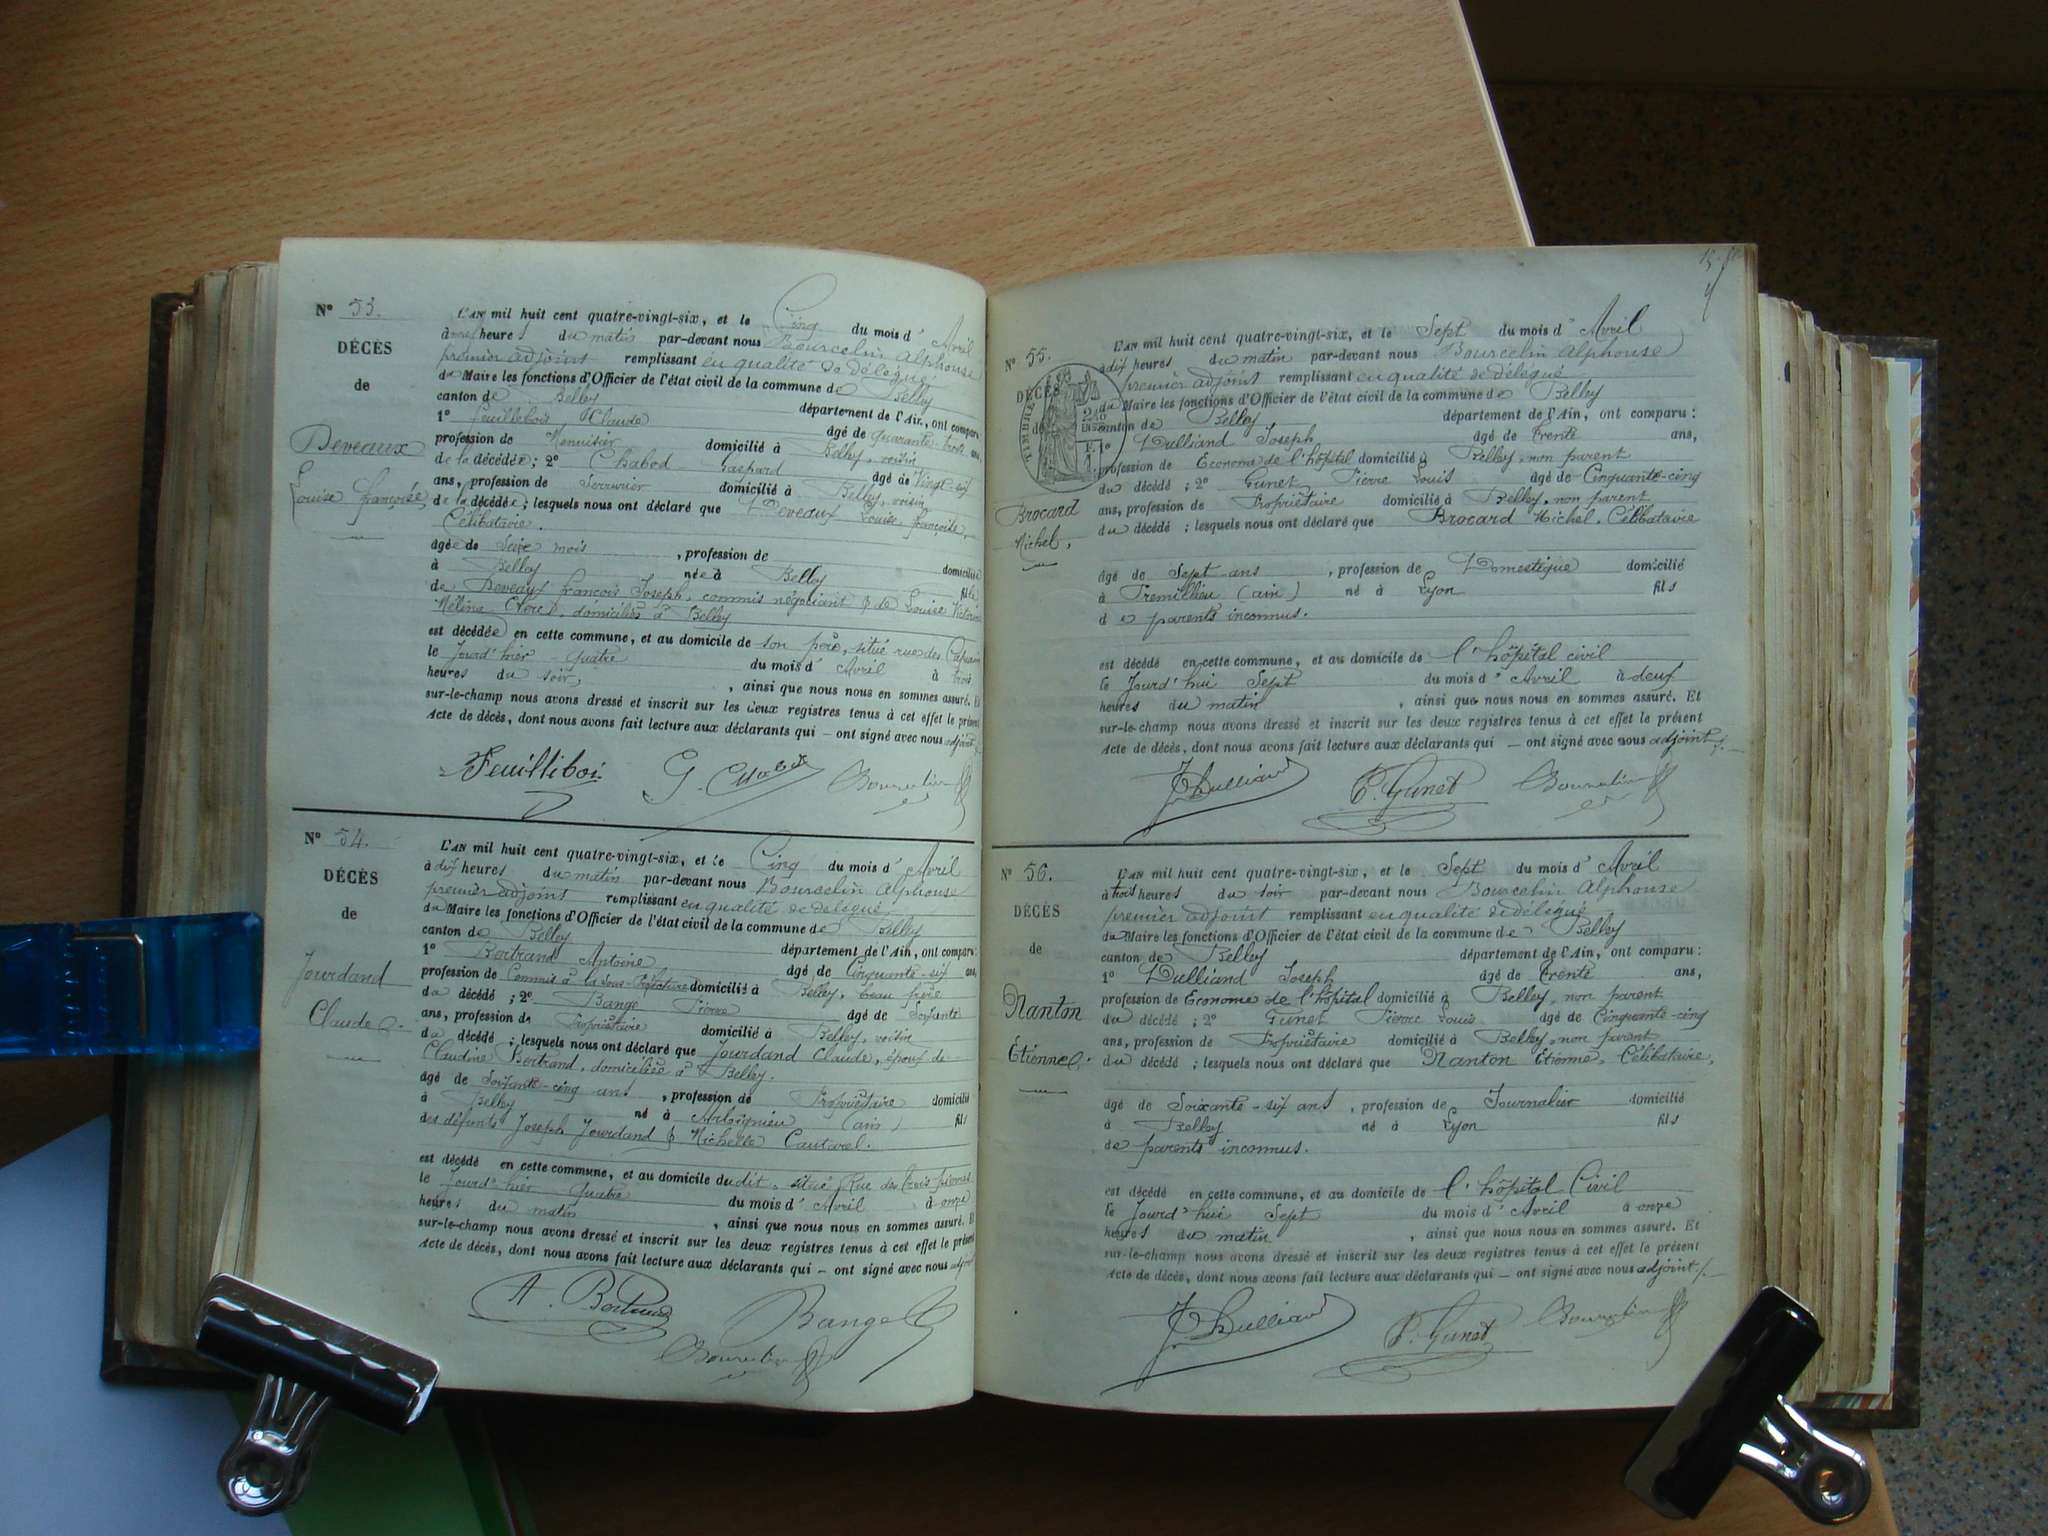 N° 53.
DÉCÈS
de
Deveaux
Louise françoise
L'AN mil huit cent quatre-vingt-six, et le Cinq du mois d'Avril
à neuf heures du matin par-devant nous Bourcelin Alphonse
premier adjoint remplissant en qualité de délégué
du Maire les fonctions d'Officier de l'état civil de la commune de Belley
canton de Belley département de l'Ain, ont comparu
1° Feuillebois Claude âgé de quarante-trois ans,
profession de Menuisier domicilié à Belley, voisin
de la décédée; 2° Chabod Gaspard âgé de Vingt-six
ans, profession de Serrurier domicilié à Belley, voisin
de la décédée; lesquels nous ont déclaré que Deveaux Louise françoise,
Célibataire.
âgée de Seize mois, profession de domiciliée
à Belley née à Belley fille
de Deveaux françois Joseph, commis négociant & de Louise
Mélina Clerc, domiciliés à Belley
est décédée en cette commune, et au domicile de son père, situé rue des
le Jourd'hier quatre du mois d'Avril à trois
heures du soir, ainsi que nous nous en sommes assuré. Et
sur-le-champ nous avons dressé et inscrit sur les deux registres tenus à cet effet le présent
acte de décès, dont nous avons fait lecture aux déclarants qui — ont signé avec nous adjoint
Feuilliboi G. Chabod Bourcelin
N° 54.
DÉCÈS
de
Jourdand
Claude.
L'AN mil huit cent quatre-vingt-six, et le Cinq du mois d'Avril
à dix heures du matin par-devant nous Bourcelin Alphonse
premier adjoint remplissant en qualité de délégué
du Maire les fonctions d'Officier de l'état civil de la commune de Belley
canton de Belley département de l'Ain, ont comparu:
1° Bertrand Antoine âgé de Cinquante-six ans,
profession de Commis à la Sous-Préfecture domicilié à Belley, beau frère
du décédé; 2° Bange Pierre âgé de Soixante
ans, profession de Propriétaire domicilié à Belley, voisin
du décédé; lesquels nous ont déclaré que Jourdand Claude, époux de
Claudine Bertrand, domiciliée à Belley.
âgé de Soixante-cinq ans, profession de Propriétaire domicilié
à Belley né à (ain) fils
des défunts Joseph Jourdand & Michelle
est décédé en cette commune, et au domicile dudit, situé Rue des Trois
le Jourd'hier quatre du mois d'Avril à onze
heures du matin, ainsi que nous nous en sommes assuré. Et
sur-le-champ nous avons dressé et inscrit sur les deux registres tenus à cet effet le présent
acte de décès, dont nous avons fait lecture aux déclarants qui — ont signé avec nous adjoint
A. Bertrand Bange
Bourcelin
N° 55.
DÉCÈS
de
TIMBRE
Brocard
Michel,
L'AN mil huit cent quatre-vingt-six, et le Sept du mois d'Avril
à dix heures du matin par-devant nous Bourcelin Alphonse
premier adjoint remplissant en qualité de délégué
du Maire les fonctions d'Officier de l'état civil de la commune de Belley
canton de Belley département de l'Ain, ont comparu:
1° Dulliand Joseph âgé de trente ans,
profession de Econome de l'hôpital domicilié à Belley, non parent
du décédé; 2° Gunet Pierre Louis âgé de Cinquante-cinq
ans, profession de Propriétaire domicilié à Belley, non parent
du décédé; lesquels nous ont déclaré que Brocard Michel, Célibataire
âgé de Sept ans, profession de Domestique domicilié
à Premillieu (ain) né à Lyon fils
de parents inconnus.
est décédé en cette commune, et au domicile de l'hôpital civil
le Jourd'hui Sept du mois d'Avril à deux
heures du matin, ainsi que nous nous en sommes assuré. Et
sur-le-champ nous avons dressé et inscrit sur les deux registres tenus à cet effet le présent
acte de décès, dont nous avons fait lecture aux déclarants qui — ont signé avec nous adjoint
J. Dulliand P. Gunet Bourcelin
N° 56.
DÉCÈS
de
Nanton
Etienne.
L'AN mil huit cent quatre-vingt-six, et le Sept du mois d'Avril
à trois heures du soir par-devant nous Bourcelin Alphonse
premier adjoint remplissant en qualité de délégué
du Maire les fonctions d'Officier de l'état civil de la commune de Belley
canton de Belley département de l'Ain, ont comparu:
1° Dulliand Joseph âgé de trente ans,
profession de Econome de l'hôpital domicilié à Belley, non parent
du décédé; 2° Gunet Pierre Louis âgé de Cinquante-cinq
ans, profession de Propriétaire domicilié à Belley, non parent
du décédé; lesquels nous ont déclaré que Nanton Etienne, Célibataire,
âgé de Soixante-six ans, profession de Journalier domicilié
à Belley né à Lyon fils
de parents inconnus.
est décédé en cette commune, et au domicile de l'hôpital Civil
le Jourd'hui Sept du mois d'Avril à onze
heures du matin, ainsi que nous nous en sommes assuré. Et
sur-le-champ nous avons dressé et inscrit sur les deux registres tenus à cet effet le présent
acte de décès, dont nous avons fait lecture aux déclarants qui — ont signé avec nous adjoint
J. Dulliand P. Gunet Bourcelin